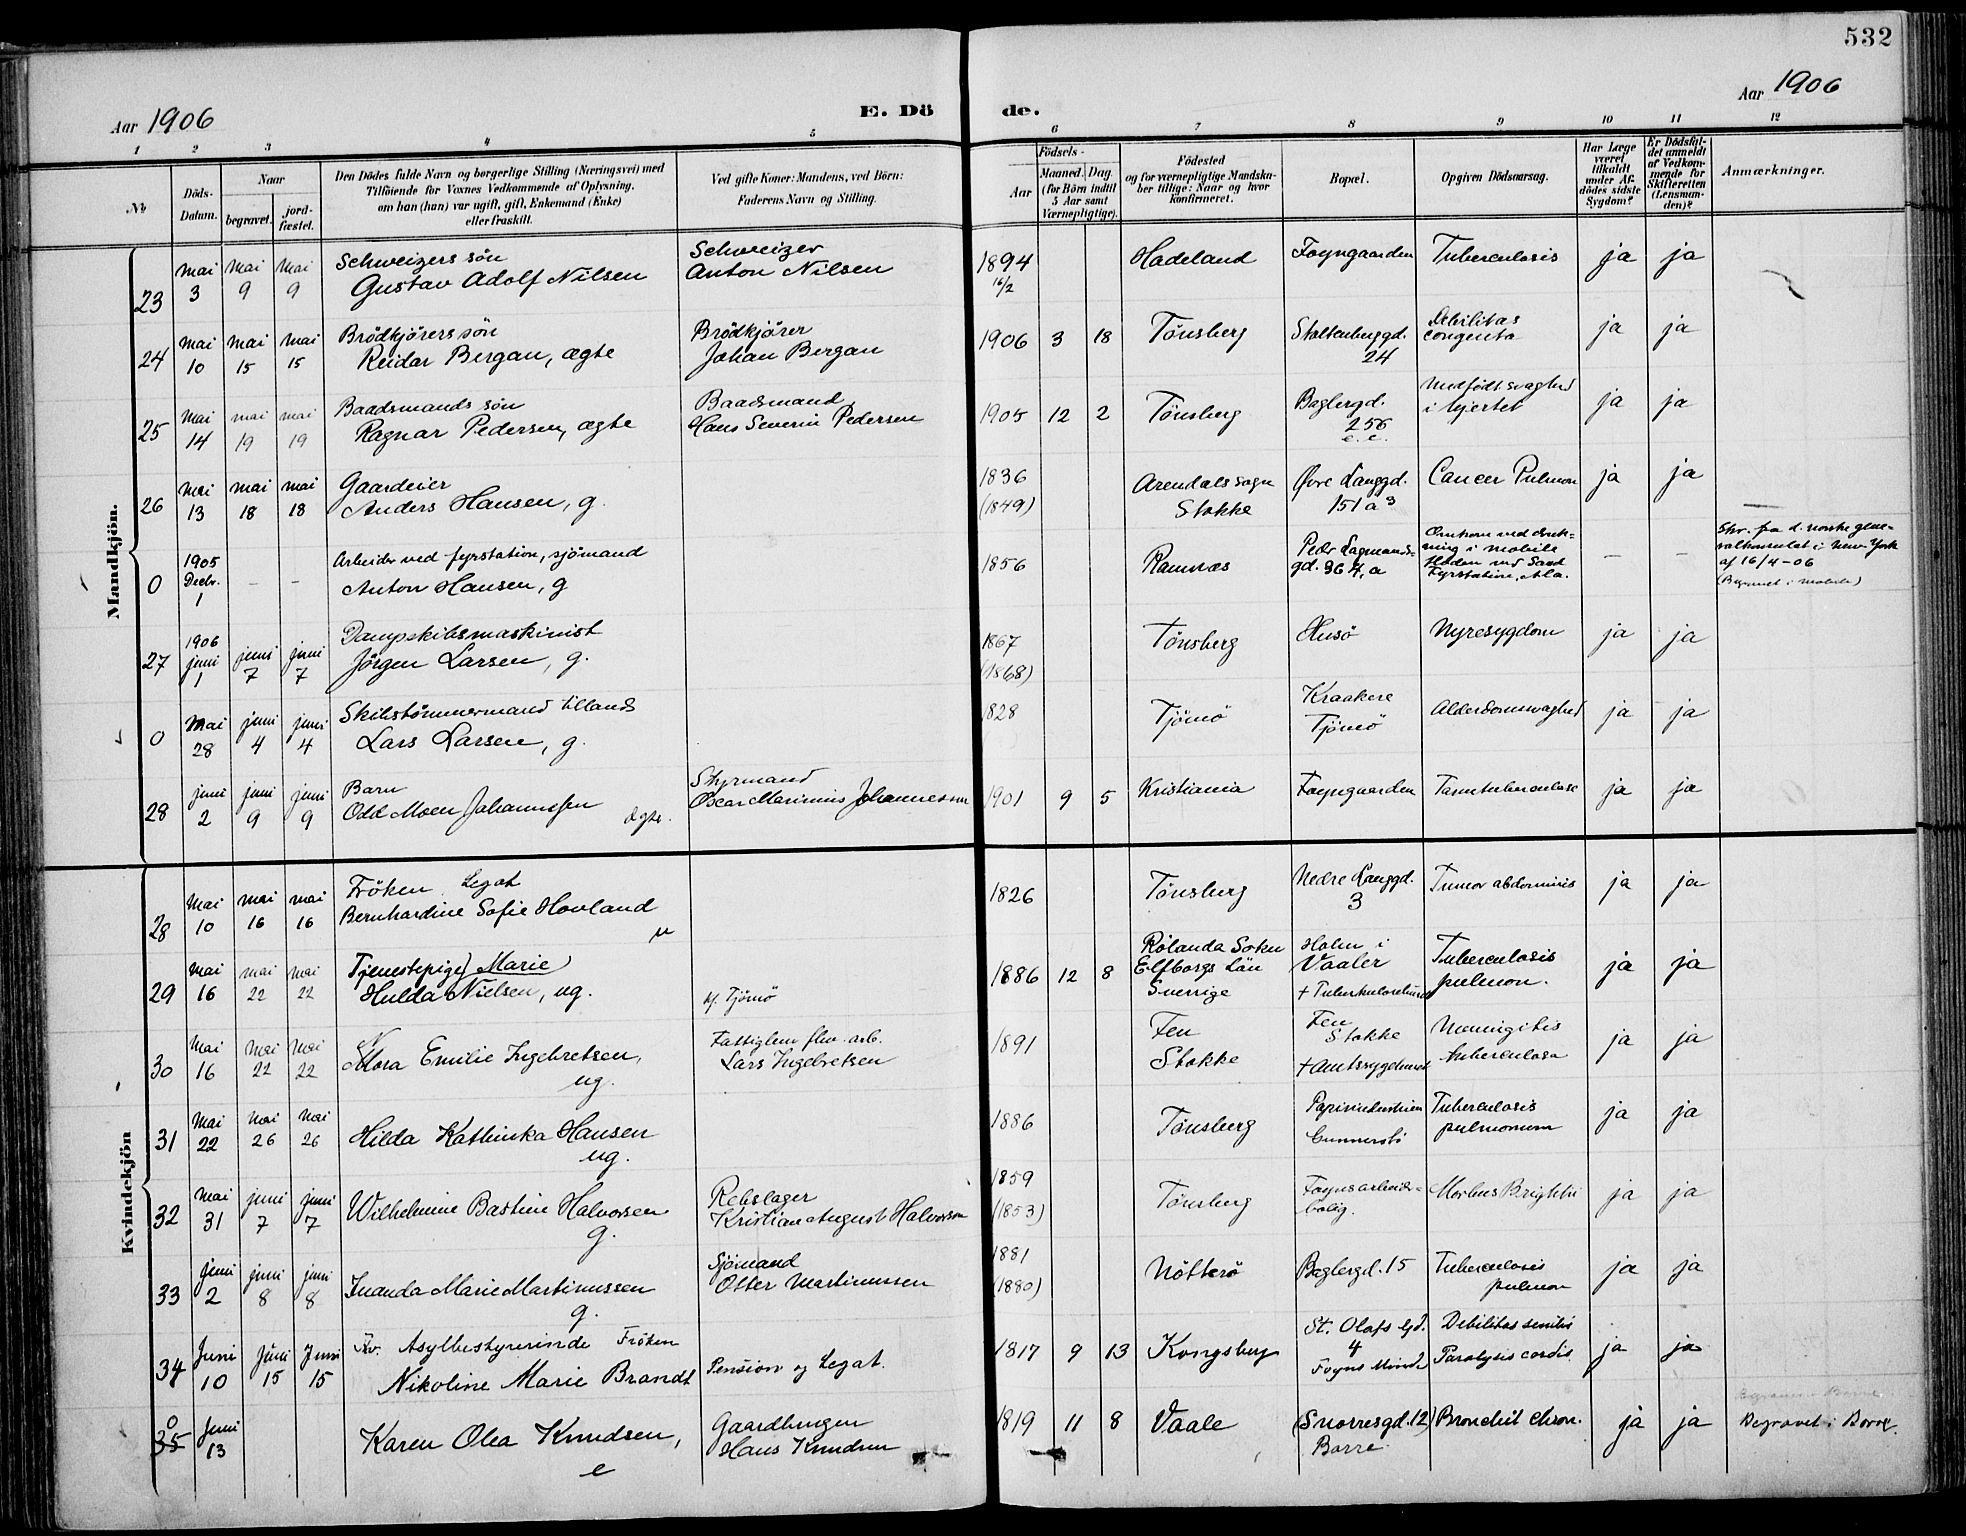 532
Aar 1906
E. Dö de.
Aar 1906
1 2 3 4 5 6 7 8 9 10 11 12
№
Döds-Datum.
Naar
begravet.
jord-fæstet.
Den Dödes fulde Navn og borgerlige Stilling (Næringsvei) med
Tilföiende for Voxnes Vedkommende af Oplysning,
om han (hun) var ugift, gift, Enkemand (Enke)
eller fraskilt.
Ved gifte Koner: Mandens, ved Börn:
Faderens Navn og Stilling.
Födsels-
Aar
Maaned. Dag
(for Börn indtil
5 Aar samt
Værnepligtige).
Födested
og for værnepligtige Mandska-
ber tillige: Naar og hvor
konfirmeret.
Bopæl.
Opgiven Dödsaarsag.
Har Læge
været
tilkaldt
under Af-
dödes sidste
Sygdom?
Er Dödsfal-
det anmeldt
af Vedkom-
mende for
Skifteretten
(Lensman-
den)?
Anmærkninger.
Mandkjön.
23 mai 3 mai 9 mai 9 Schweizers sön Gustav Adolf Nilsen Schweizer Anton Nilsen 1894 16/2 Hadeland Foyngaarden Tuberculosis ja ja
24 mai 10 mai 15 mai 15 Brödkjörers sön Reidar Bergan, ægte Brödkjörer Johan Bergan 1906 3 18 Tönsberg Stoltenberggd. 24 Debilitas congenita ja ja
25 mai 14 mai 19 mai 19 Baadsmands sön Ragnar Pedersen, ægte Baadsmand Hans Severin Pedersen 1905 12 2 Tönsberg Baglergd. 256 Medfödt svaghed i hjertet ja ja
26 mai 13 mai 18 mai 18 Gaardeier Anders Hansen, g. 1836 (1849) Arendals sogn Stokke Øvre Langgd. 151 a 3 Cancer Pulmon ja ja
0 1905 Decbr. 1 – – Arbeider ved fyrstation, sjömand Anton Hansen, g 1856 Ramnæs Peder Lagmands-gd. 367, a Omkom ved druk-ning i Mobile Floden ved Sand Fyrstation, Ala. – – Skr. fra d. norske gene-ralkonsulat i New York af 16/4-06 (Begravet i Mobile)
27 1906 juni 1 juni 7 juni 7 Dampskibsmaskinist Jörgen Larsen, g. 1867 (1868) Tönsberg Husö Nyresygdom ja ja
0 Mai 28 juni 4 juni 4 Skibstömmermand tillands Lars Larsen, g. 1828 Tjömö Kraakere Tjömö Alderdomssvaghed ja ja
28 juni 2 juni 9 juni 9 Barn Odd Moen Johannessen ægte. Styrmand Oscar Marinius Johannessen 1901 9 5 Kristiania Foyngaarden Tarmtuberculose ja ja
Kvindekjön
28 Mai 10 mai 16 mai 16 Fröken Legat Bernhardine Sofie Hovland u 1826 Tönsberg Nedre Langgd. 3 Tumor abdominis ja ja
29 Mai 16 mai 22 mai 22 Tjenestepige, Marie Hulda Nielsen, ug. Tjömö 1886 12 8 Rölanda Soken Elfborgs Län Sverrige Holm i Vaaler + Tuberkulosehuset Tuberculosis pulmon. ja ja
30 Mai 16 mai 22 mai 22 Nora Emilie Ingebretsen, ug. Fattiglem flev. arb. Lars Ingebretsen 1891 Fen Stokke Fen Stokke + Amtssygehuset Meningitis tuberculosa ja ja
31 Mai 22 Mai 26 Mai 26 Hilda Kathinka Hansen ug. 1886 Tönsberg Papirindustrien Gunnersbö Tuberculosis pulmonum ja ja
32 mai 31 juni 7 juni 7 Wilhelmine Bastine Halvorsen g. Rebslager Kristian August Halvorsen 1859 (1853) Tönsberg Foynsarbeids-bolig. Morbus Brightii ja ja
33 juni 2 juni 8 juni 8 Inanda Marie Martinussen g. Sjömand Otter Martinussen 1881 (1880) Nötterö Baglergd. 15 Tuberculosis pulmon ja ja
34 Juni 10 Juni 15 Juni 15 Fhv. Asylbestyrerinde Fröken Nikoline Marie Brandt Pension og Legat. 1817 9 13 Kongsberg St. Olafs Gd. 4 Foyns Minde Debilitas senilis Paralysis cordis ja ja
0 35 Juni 13 Karen Olea Knudsen, e Gaardbruger Hans Knudsen 1819 11 8 Vaale (Snorresgd. 12) Borre Bronchit chron. ja ja Begravet i Borre.